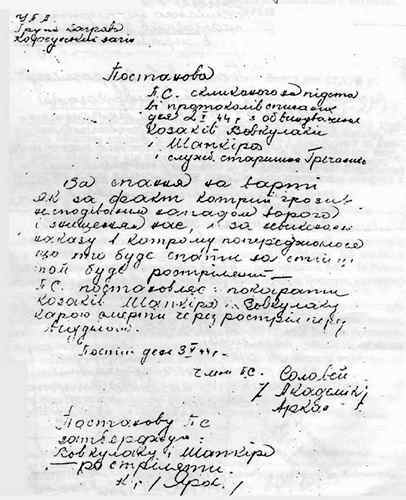 У.П.А.
Група
загін
Постанова
П.С. скликаного на підста
ві протоколів списаних
дня 2 V 44 р. з обвинувачення
козаків Вовкулаки
і Шапкіра
і служб. старшини
За спання на варті
як за факт котрий грозив
несподіваним нападом ворога
і знищення нас, і за невиконання
наказу в котрому попереджалося
що хто буде спати на стійці
той буде розтріляний —
П.С. постановляє: покарати
козаків Шапкіра і Вовкулаку
карою смерти через розтріл перед
Постій дня 3 V 44 р.
Члени П.С. Соловей
/ Академік /
Аркас
Постанову ПС
затверджую:
Вовкулаку і Шапкіра
— розтріляти.
К. / Ярок /